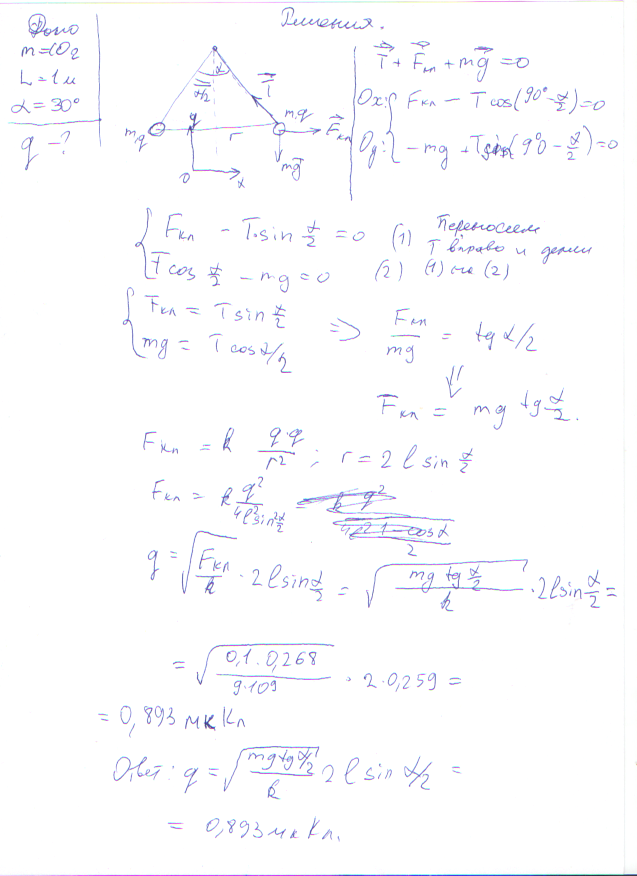 Дано
m=10г
L=1м
α=30°
q-?
Решения.
α
α/2
T
m,q
m,q
r
Fкл
mg
y
O
x
T + Fкл + mg = 0
Ox: { Fкл - T cos(90° - α/2) = 0
Oy: { - mg + T sin(90° - α/2) = 0
{ Fкл - T·sin α/2 = 0 (1)
T cos α/2 - mg = 0 (2)
Переносим
T вправо и делим
(1) на (2)
{ Fкл = T sin α/2
mg = T cos α/2
=> Fкл/mg = tg α/2
Fкл = mg tg α/2.
Fкл = k q·q/r²; r = 2 l sin α/2
Fкл = k q²/4l² sin² α/2
q = √(Fкл/k) · 2l sin α/2 = √(mg tg α/2 / k) · 2l sin α/2 =
= √(0,1·0,268 / 9·109) · 2·0,259 =
= 0,893 мкКл
Ответ: q = √(mg tg α/2 / k) 2 l sin α/2 =
= 0,893 мкКл.